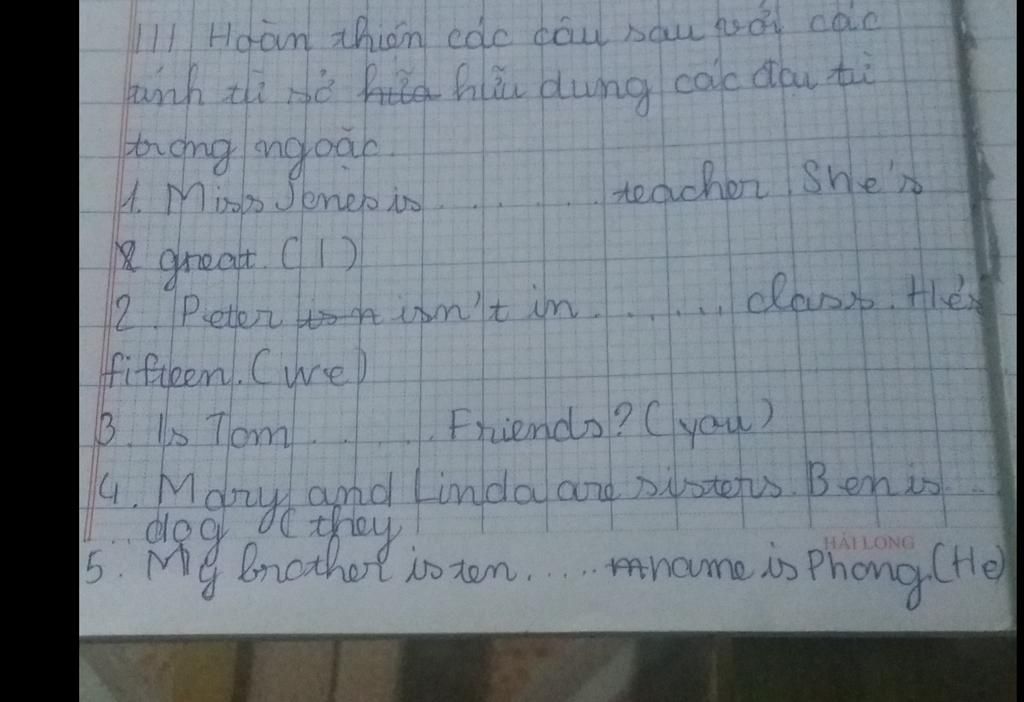 III Hoàn thiện các câu sau với các
tính từ sở hữu dung các đại từ
trong ngoặc.
1. Miss Jones is ........ teacher She's
great. (I)
2. Peter isn't in ...... class. He's
fifteen. (we)
3. Is Tom ...... Friends? (you)
4. Mary and Linda are sisters. Ben is ..
.. dog (they
HẢI LONG
5. My brother is ten. .... name is Phong. (He)